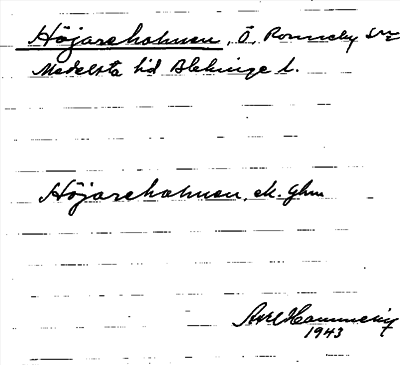 Höjareholmen, Ö, Ronneby sn
Medelsta hd Blekinge l.
Höjareholmen, ek. Ghm
Axel Hamnering
1943